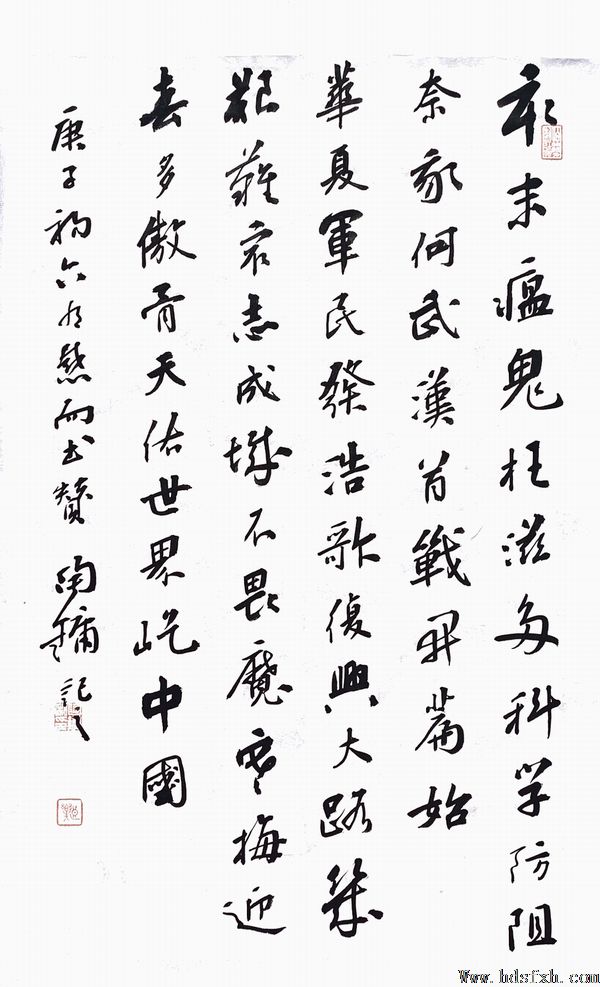 亥末瘟鬼枉滋多科学防阻
奈家何武漢首戰开篇始
華夏軍民發浩歌復興大路築
艱難衆志成城不畏魔寒梅迎
春多傲骨天佑世界屹中國
庚子初六有感而书赞 陶墉記之
Www.hdsfxh.com